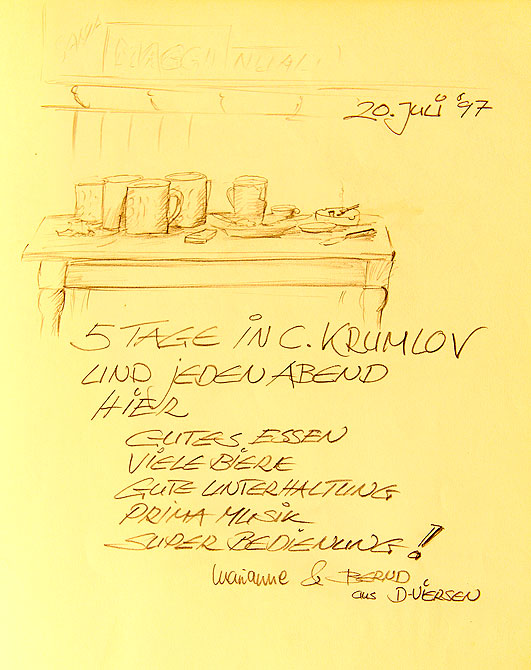 20. Juli '97
5 TAGE IN C. KRUMLOV
UND JEDEN ABEND
HIER
GUTES ESSEN
VIELE BIERE
GUTE UNTERHALTUNG
PRIMA MUSIK
SUPER BEDIENUNG!
Marianne & BERND
aus D-VIERSEN